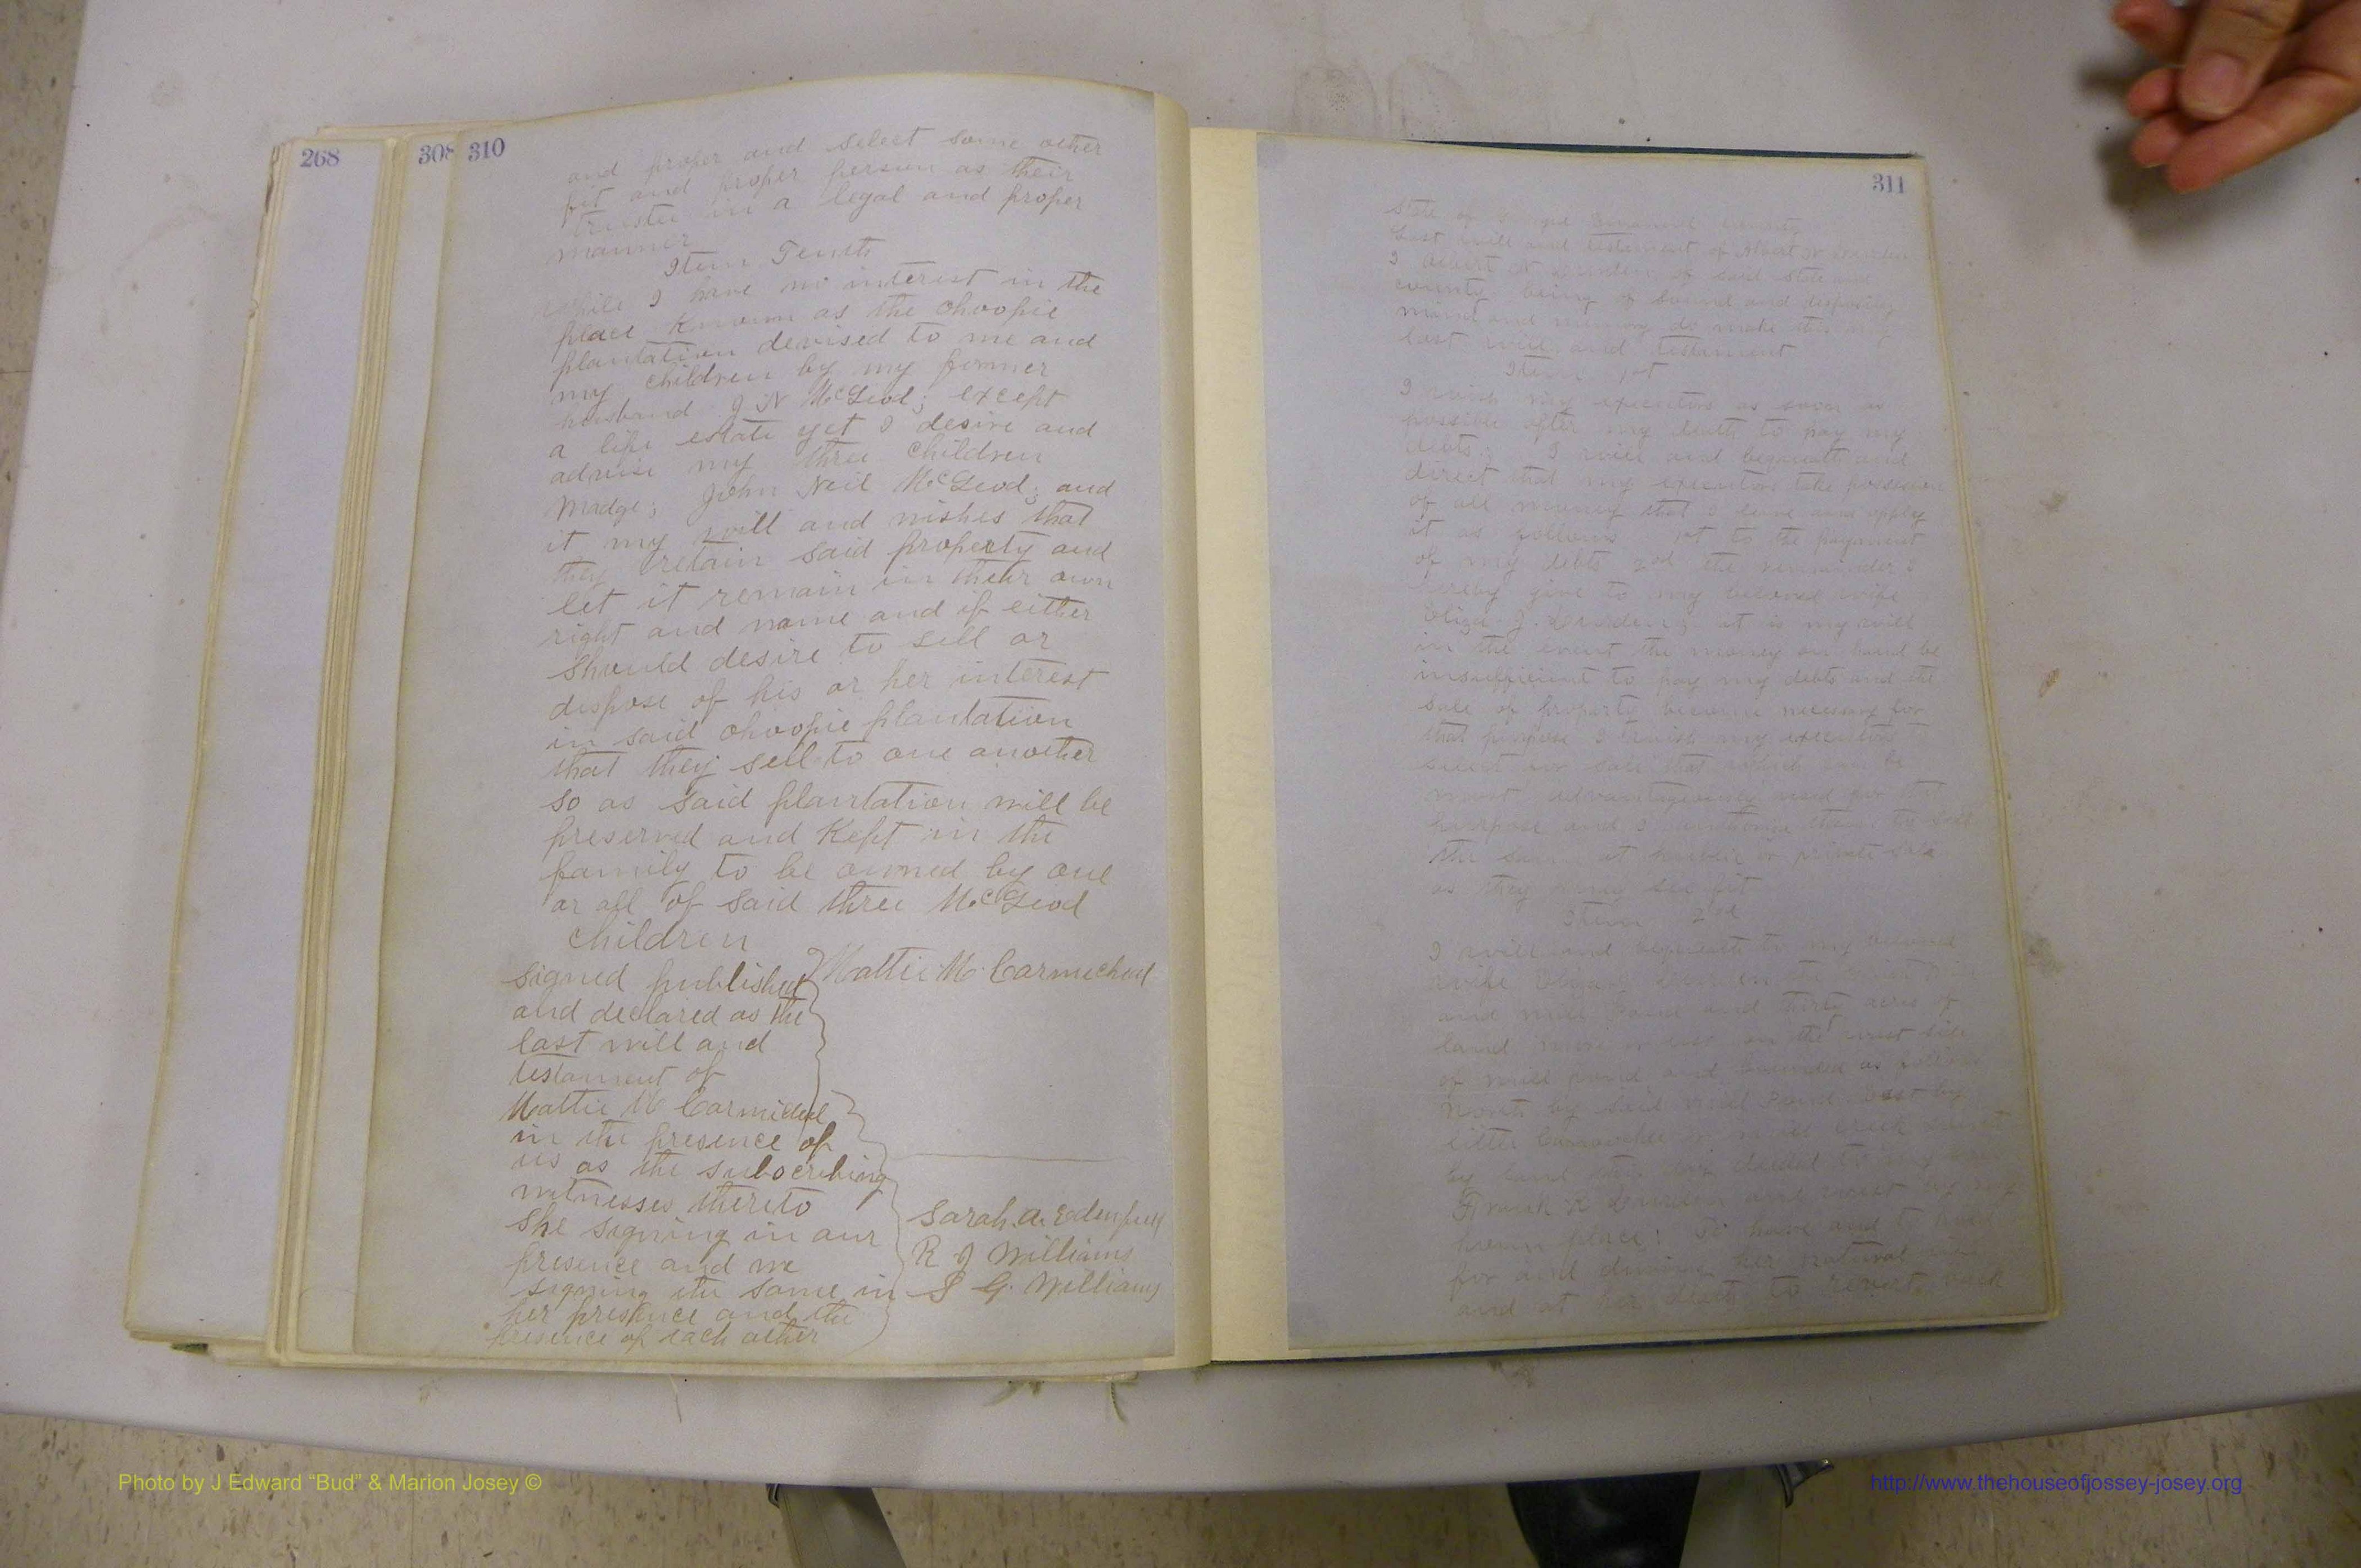 268
308
310
and proper and select some other
fit and proper person as their
trustee in a legal and proper
manner
Item Tenth
while I have no interest in the
place Known as the ohoopie
plantation devised to me and
my children by my former
husband J N McLeod; except
a life estate yet I desire and
advise my three children
Madge; John Neil McLeod; and
it my will and wishes that
they retain said property and
let it remain in their own
right and name and if either
should desire to sell or
dispose of his or her interest
in said ohoopie plantation
that they sell to one another
so as said plantation will be
preserved and Kept in the
family to be owned by one
or all of said three McLeod
children
signed published Mattie M. Carmichael
and declared as the
last will and
testament of
Mattie M Carmichael
in the presence of
us as the subscribing
witnesses thereto
she signing in our
presence and we
signing the same in
her presence and the
presence of each other
Sarah. A. Edenfield
R J Williams
S G. Williams
311
State of county
Last will and testament of
I of said state and
county being of sound and disposing
mind and memory do make this my
last will and testament
Item 1st
I wish my executors as soon as
possible after my death to pay my
debts; I will and bequeath and
direct that my executors take possession
of all money that I leave and apply
it as follows 1st to the payment
of my debts 2nd the remainder I
hereby give to my beloved wife
Eliza J. Durden; it is my will
in the event the money on hand be
insufficient to pay my debts and the
sale of property become necessary for
that purpose I wish my executors to
select for sale that which can be
most advantageously used for that
purpose and I authorize them to sell
the same at public or private sale
as they may see fit
Item 2nd
I will and bequeath to my beloved
wife
and mill pond and thirty acres of
land more or less on the west side
of mill pond and bounded as follows
North by said mill pond East by
little mill creek
by land deeded to my
Frank Durden and west by my
home place; To have and to hold
for and during her natural
and at her death to revert back
Photo by J Edward “Bud” & Marion Josey ©
http://www.thehouseofjossey-josey.org